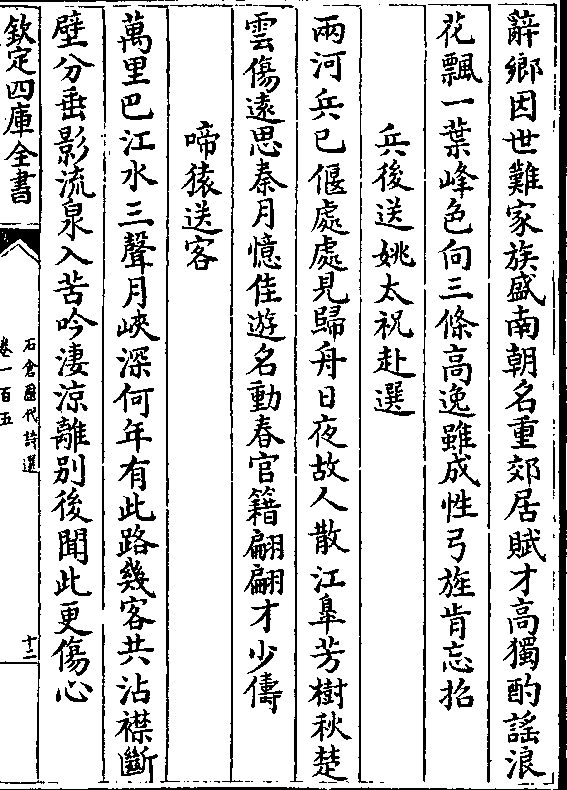 辭鄉因世難家族盛南朝名重郊居賦才高獨酌謡浪
花飄一葉峰色向三條高逸雖成性弓旌肯忘招
兵後送姚太祝赴選
兩河兵已偃處處見歸舟日夜故人散江皐芳樹秋楚
雲傷遠思秦月憶佳遊名動春官籍翩翩才少儔
啼猿送客
萬里巴江水三聲月峽深何年有此路幾客共沾襟斷
壁分垂影流泉入苦吟淒涼離别後聞此更傷心
欽定四庫全書
石倉歷代詩選
卷一百五
十二